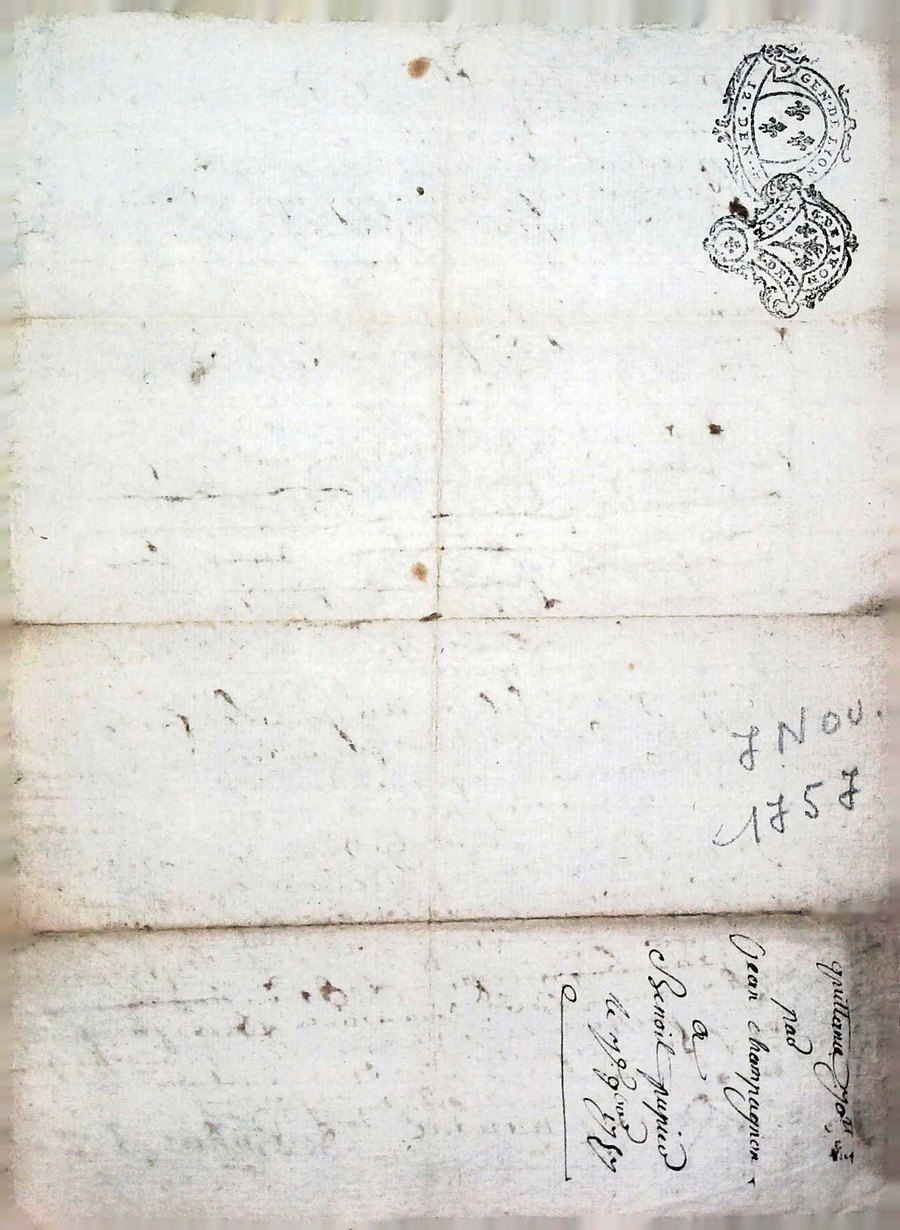 GEN · DE LION
12 · DEN ·
7 Nov.
1757
quittance
par
Jean champagnon
a
Benoit pupier
le 7e 9bre 1757